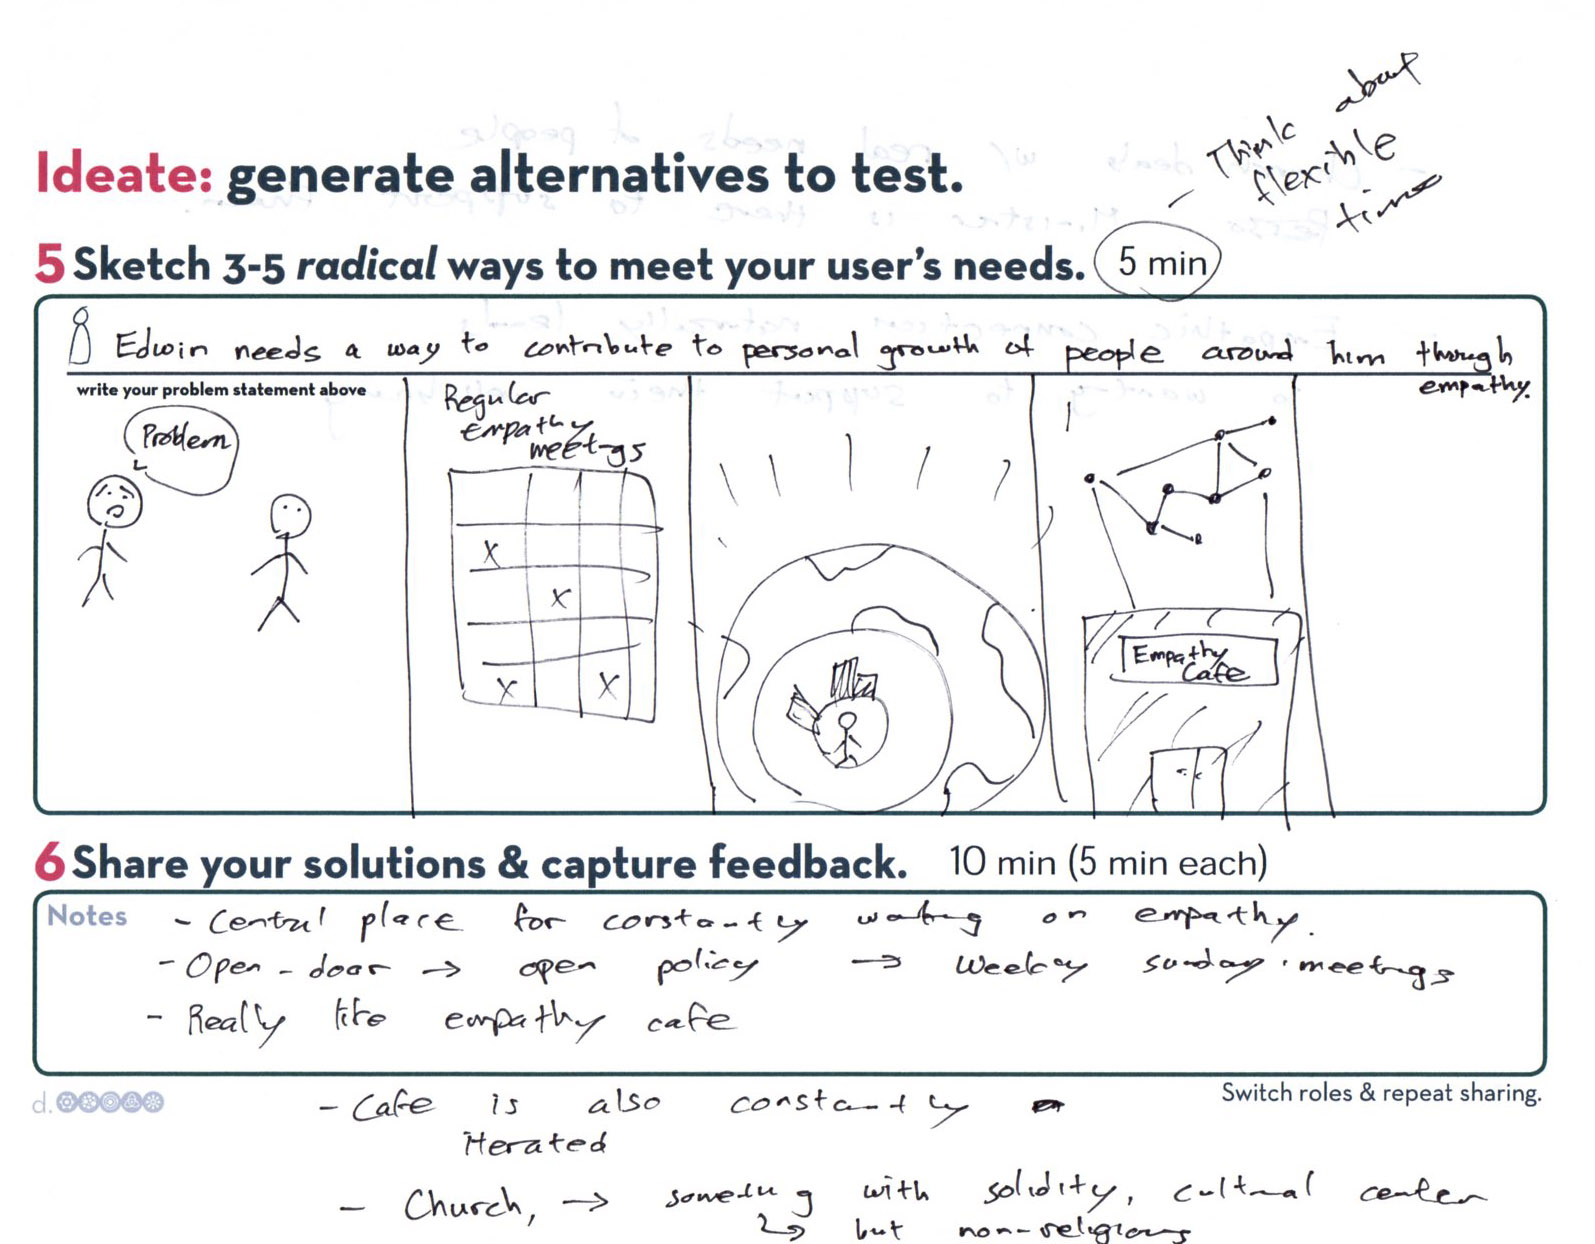 - Think about
flexible
time
Ideate: generate alternatives to test.
5 Sketch 3-5 radical ways to meet your user's needs. 5 min
Edwin needs a way to contribute to personal growth of people around him through
empathy.
write your problem statement above
Problem
Regular
empathy
meetings
Empathy
Cafe
6 Share your solutions & capture feedback. 10 min (5 min each)
Notes
- Central place for constantly working on empathy.
- Open-door → open policy → Weekly sunday meetings
- Really like empathy cafe
d.
Switch roles & repeat sharing.
- Cafe is also constantly
iterated
- Church, → something with solidity, cultural center
↳ but non-religious